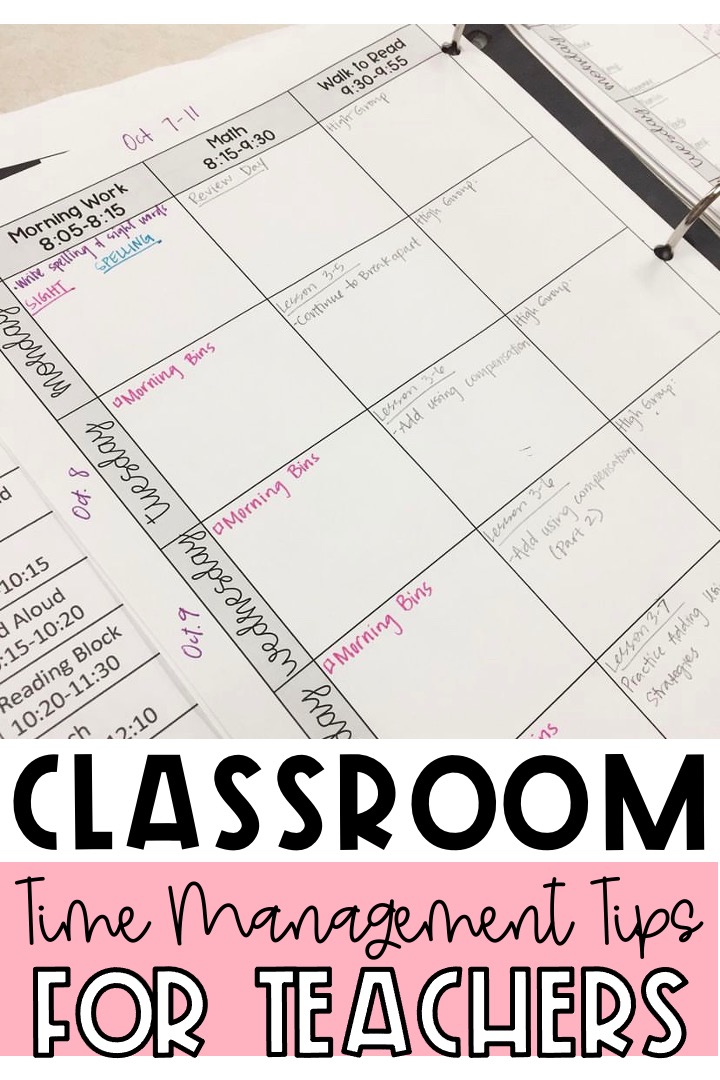 Oct 7-11
Morning Work
8:05-8:15
Math
8:15-9:30
Walk to Read
9:30-9:55
monday
• Write spelling & sight words
SIGHT
SPELLING
Review Day
High Group
tuesday
Oct. 8
Morning Bins
Lesson 3-5
- Continue to Break apart
High Group.
wednesday
Oct. 9
Morning Bins
Lesson 3-6
- Add using compensation
High Group.
day
Morning Bins
Lesson 3-6
- Add using compensation
(Part 2)
High Group.
ins
Lesson 3-7
Practice Adding
Strategies
monday
tuesday
10:15
d Aloud
:15-10:20
Reading Block
10:20-11:30
ch
12:10
CLASSROOM
Time Management Tips
FOR TEACHERS